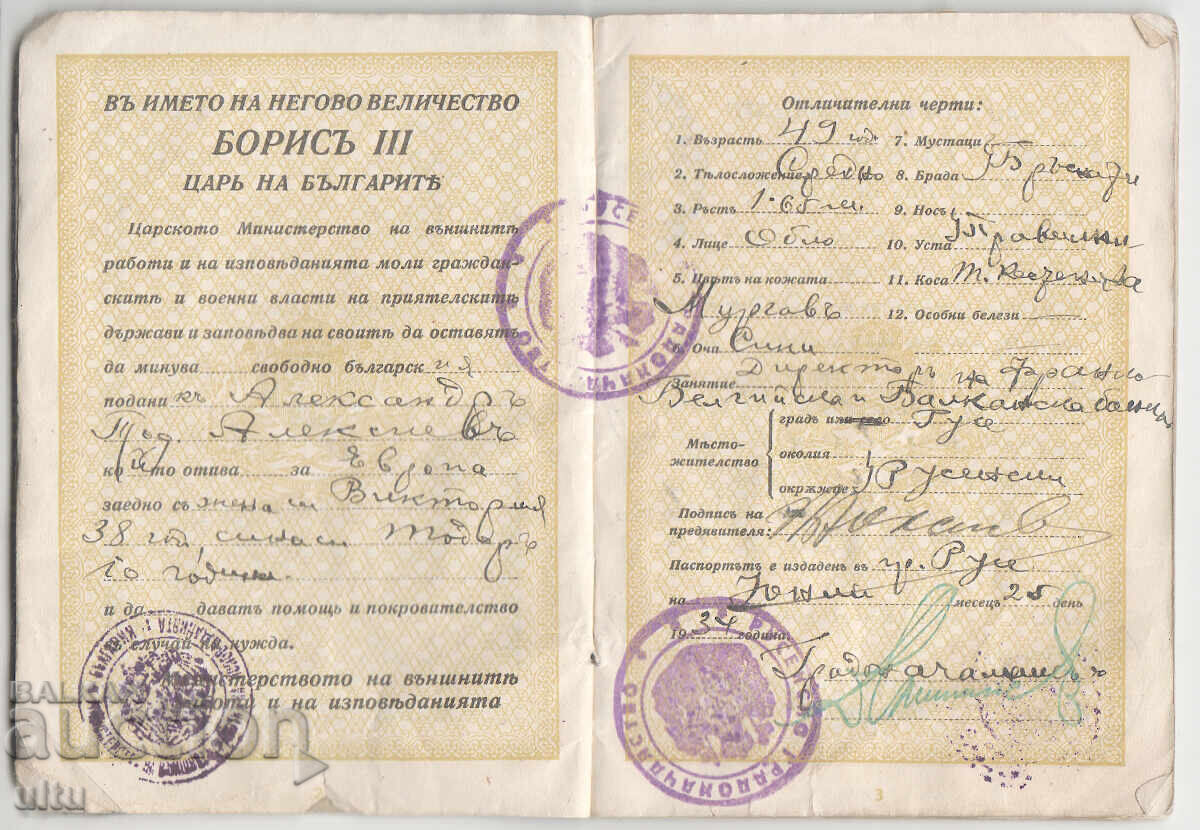 ВЪ ИМЕТО НА НЕГОВО ВЕЛИЧЕСТВО
БОРИСЪ III
ЦАРЬ НА БЪЛГАРИТѢ
Царското Министерство на външнитѣ
работи и на изповѣданията моли граждан-
скитѣ и военни власти на приятелскитѣ
държави и заповѣдва на своитѣ да оставятъ
да минува свободно българския
поданикъ Александръ
Тод. Алексиевъ
който отива за Европа
заедно съ жена си Виктория
38 год., сина си Тодоръ
10 години.
и да даватъ помощь и покровителство
въ случай на нужда.
Министерството на външнитѣ
работи и на изповѣданията
Отличателни черти:
1. Възрасть 49 год.
2. Тѣлосложение Средно
3. Ръстъ 1.65 м.
4. Лице Обло
5. Цвѣтъ на кожата
Мургавъ
6. Очи Сини
7. Мустаци
8. Брада
9. Носъ
10. Уста
11. Коса
12. Особни белези —
Занятие Директоръ на Франко
Белгийска и Балканска банка
градъ или село Русе
Мѣсто-
жителство
околия
окръжие Русенски
Подпись на
предявителя:
Паспортътъ е издаденъ въ гр. Русе
на Юний месецъ 25 день
1934 година.
Градоначалникъ:
3
BALKAN
auction
ultu